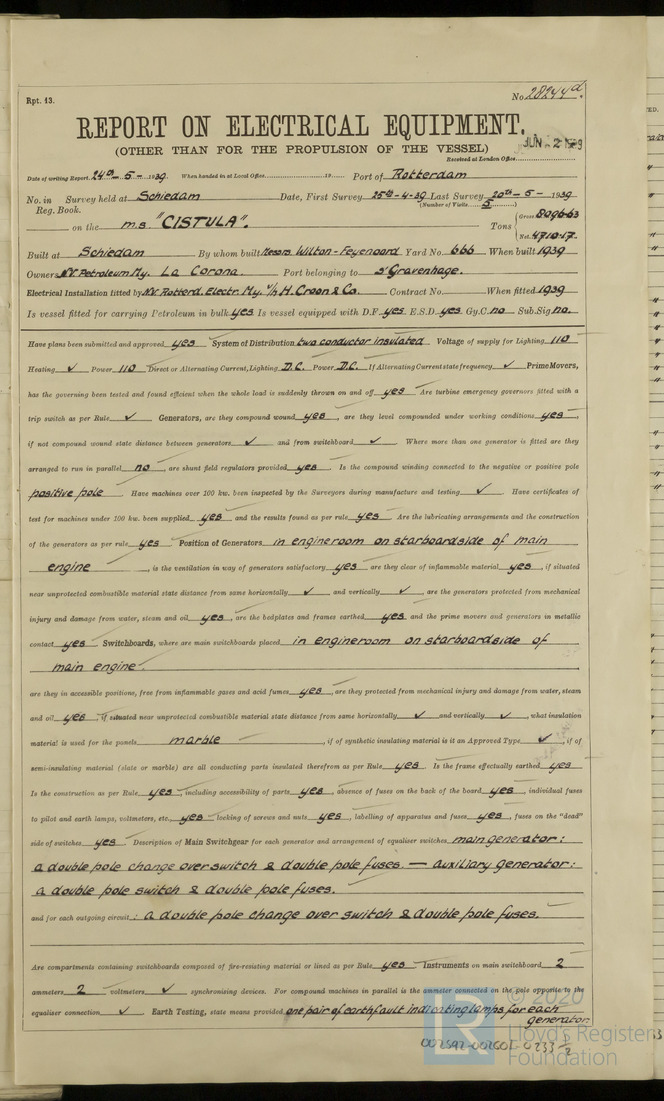 Rpt. 13.
No. 28244d.
REPORT ON ELECTRICAL EQUIPMENT.
(OTHER THAN FOR THE PROPULSION OF THE VESSEL)
JUN -2 1939
Received at London Office
Date of writing Report 24th - 5 - 1939. When handed in at Local Office 19 Port of Rotterdam
No. in Survey held at Schiedam Date, First Survey 25th-4-39 Last Survey 20th - 5 - 1939
Reg. Book. (Number of Visits 5)
on the m.s "CISTULA". Tons { Gross 8096.63
Net 4710.17
Built at Schiedam By whom built Messrs Wilton-Feyenoord Yard No. 666 When built 1939
Owners NV. Petroleum My. La Corona. Port belonging to s'Gravenhage.
Electrical Installation fitted by NV. Rotterd. Electr. My. v/h H. Croon & Co. Contract No. When fitted 1939
Is vessel fitted for carrying Petroleum in bulk yes Is vessel equipped with D.F. yes E.S.D. yes Gy.C. no Sub.Sig no.
Have plans been submitted and approved yes System of Distribution two conductor insulated Voltage of supply for Lighting 110
Heating ✓ Power 110 Direct or Alternating Current, Lighting D.C. Power D.C. If Alternating Current state frequency ✓ Prime Movers,
has the governing been tested and found efficient when the whole load is suddenly thrown on and off yes Are turbine emergency governors fitted with a
trip switch as per Rule ✓ Generators, are they compound wound yes, are they level compounded under working conditions yes,
if not compound wound state distance between generators ✓ and from switchboard ✓ Where more than one generator is fitted are they
arranged to run in parallel no, are shunt field regulators provided yes. Is the compound winding connected to the negative or positive pole
positive pole Have machines over 100 kw. been inspected by the Surveyors during manufacture and testing ✓ Have certificates of
test for machines under 100 kw. been supplied yes and the results found as per rule yes Are the lubricating arrangements and the construction
of the generators as per rule yes Position of Generators in engineroom on starboardside of main
engine, is the ventilation in way of generators satisfactory yes are they clear of inflammable material yes, if situated
near unprotected combustible material state distance from same horizontally ✓ and vertically ✓, are the generators protected from mechanical
injury and damage from water, steam and oil yes, are the bedplates and frames earthed yes and the prime movers and generators in metallic
contact yes Switchboards, where are main switchboards placed in engineroom on starboardside of
main engine.
are they in accessible positions, free from inflammable gases and acid fumes yes, are they protected from mechanical injury and damage from water, steam
and oil yes, if situated near unprotected combustible material state distance from same horizontally ✓ and vertically ✓, what insulation
material is used for the panels marble, if of synthetic insulating material is it an Approved Type ✓, if of
semi-insulating material (slate or marble) are all conducting parts insulated therefrom as per Rule yes Is the frame effectually earthed yes
Is the construction as per Rule yes, including accessibility of parts yes, absence of fuses on the back of the board yes, individual fuses
to pilot and earth lamps, voltmeters, etc., yes locking of screws and nuts yes, labelling of apparatus and fuses yes, fuses on the "dead"
side of switches yes Description of Main Switchgear for each generator and arrangement of equaliser switches main generator:
a double pole change over switch & double pole fuses. — auxiliary generator:
a double pole switch & double pole fuses.
and for each outgoing circuit: a double pole change over switch & double pole fuses.
Are compartments containing switchboards composed of fire-resisting material or lined as per Rule yes Instruments on main switchboard 2
ammeters 2 voltmeters ✓ synchronising devices. For compound machines in parallel is the ammeter connected on the pole opposite to the
equaliser connection ✓ Earth Testing, state means provided one pair of earthfault indicating lamps for each
generator.
LR © 2020
Lloyd's Register
Foundation
002592-002601-0233 1/2